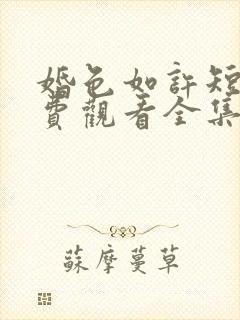 婚色如許短
費觀看全集
蘇摩蔓草